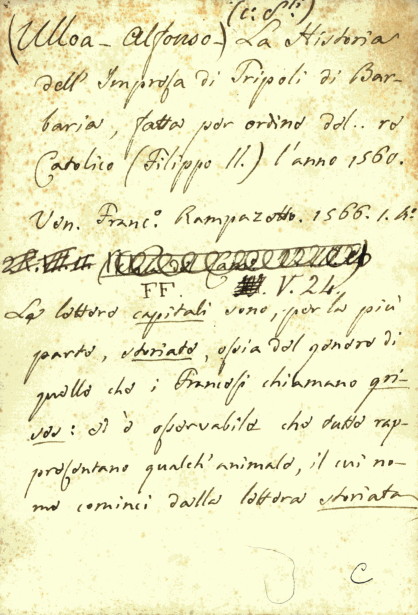 (c: S.ti)
(Ulloa - Alfonso -) La Historia
dell' Impresa di Tripoli di Bar-
baria, fatta per ordine del.. re
Catolico (Filippo II.) l'anno 1560.
Ven. Franc.o Rampazetto. 1566. 1. 4.o
FF. V. 24,
Le lettere capitali sono, per la più
parte, storiate, ossia del genere di
quelle che i Francesi chiamano gri-
ses: ed è osservabile che tutte rap-
presentano qualch' animale, il cui no-
me cominci dalla lettera storiata
C